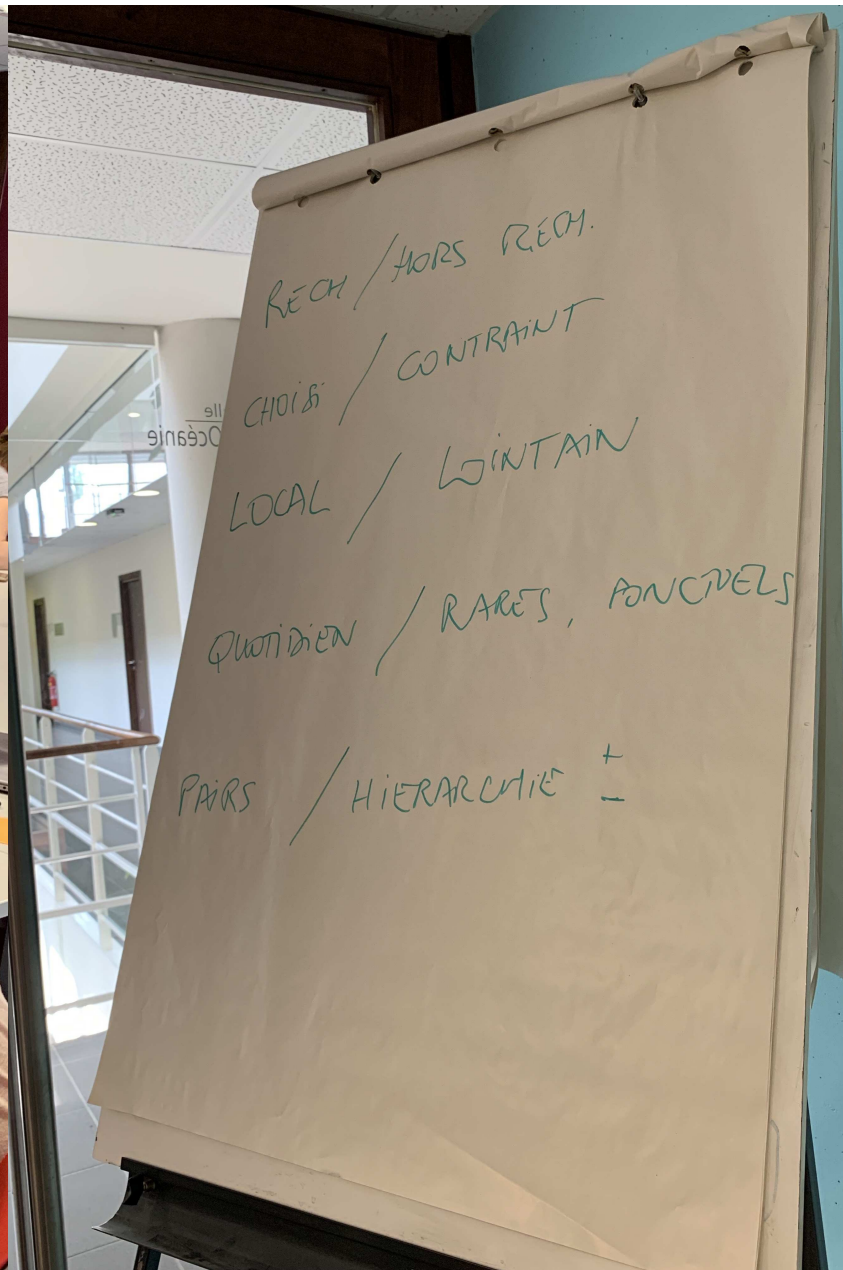 RECH / HORS RECH.
CHOISI / CONTRAINT
LOCAL / LOINTAIN
QUOTIDIEN / RARES, PONCTUELS
PAIRS / HIERARCHIE ±
lle
Océanie